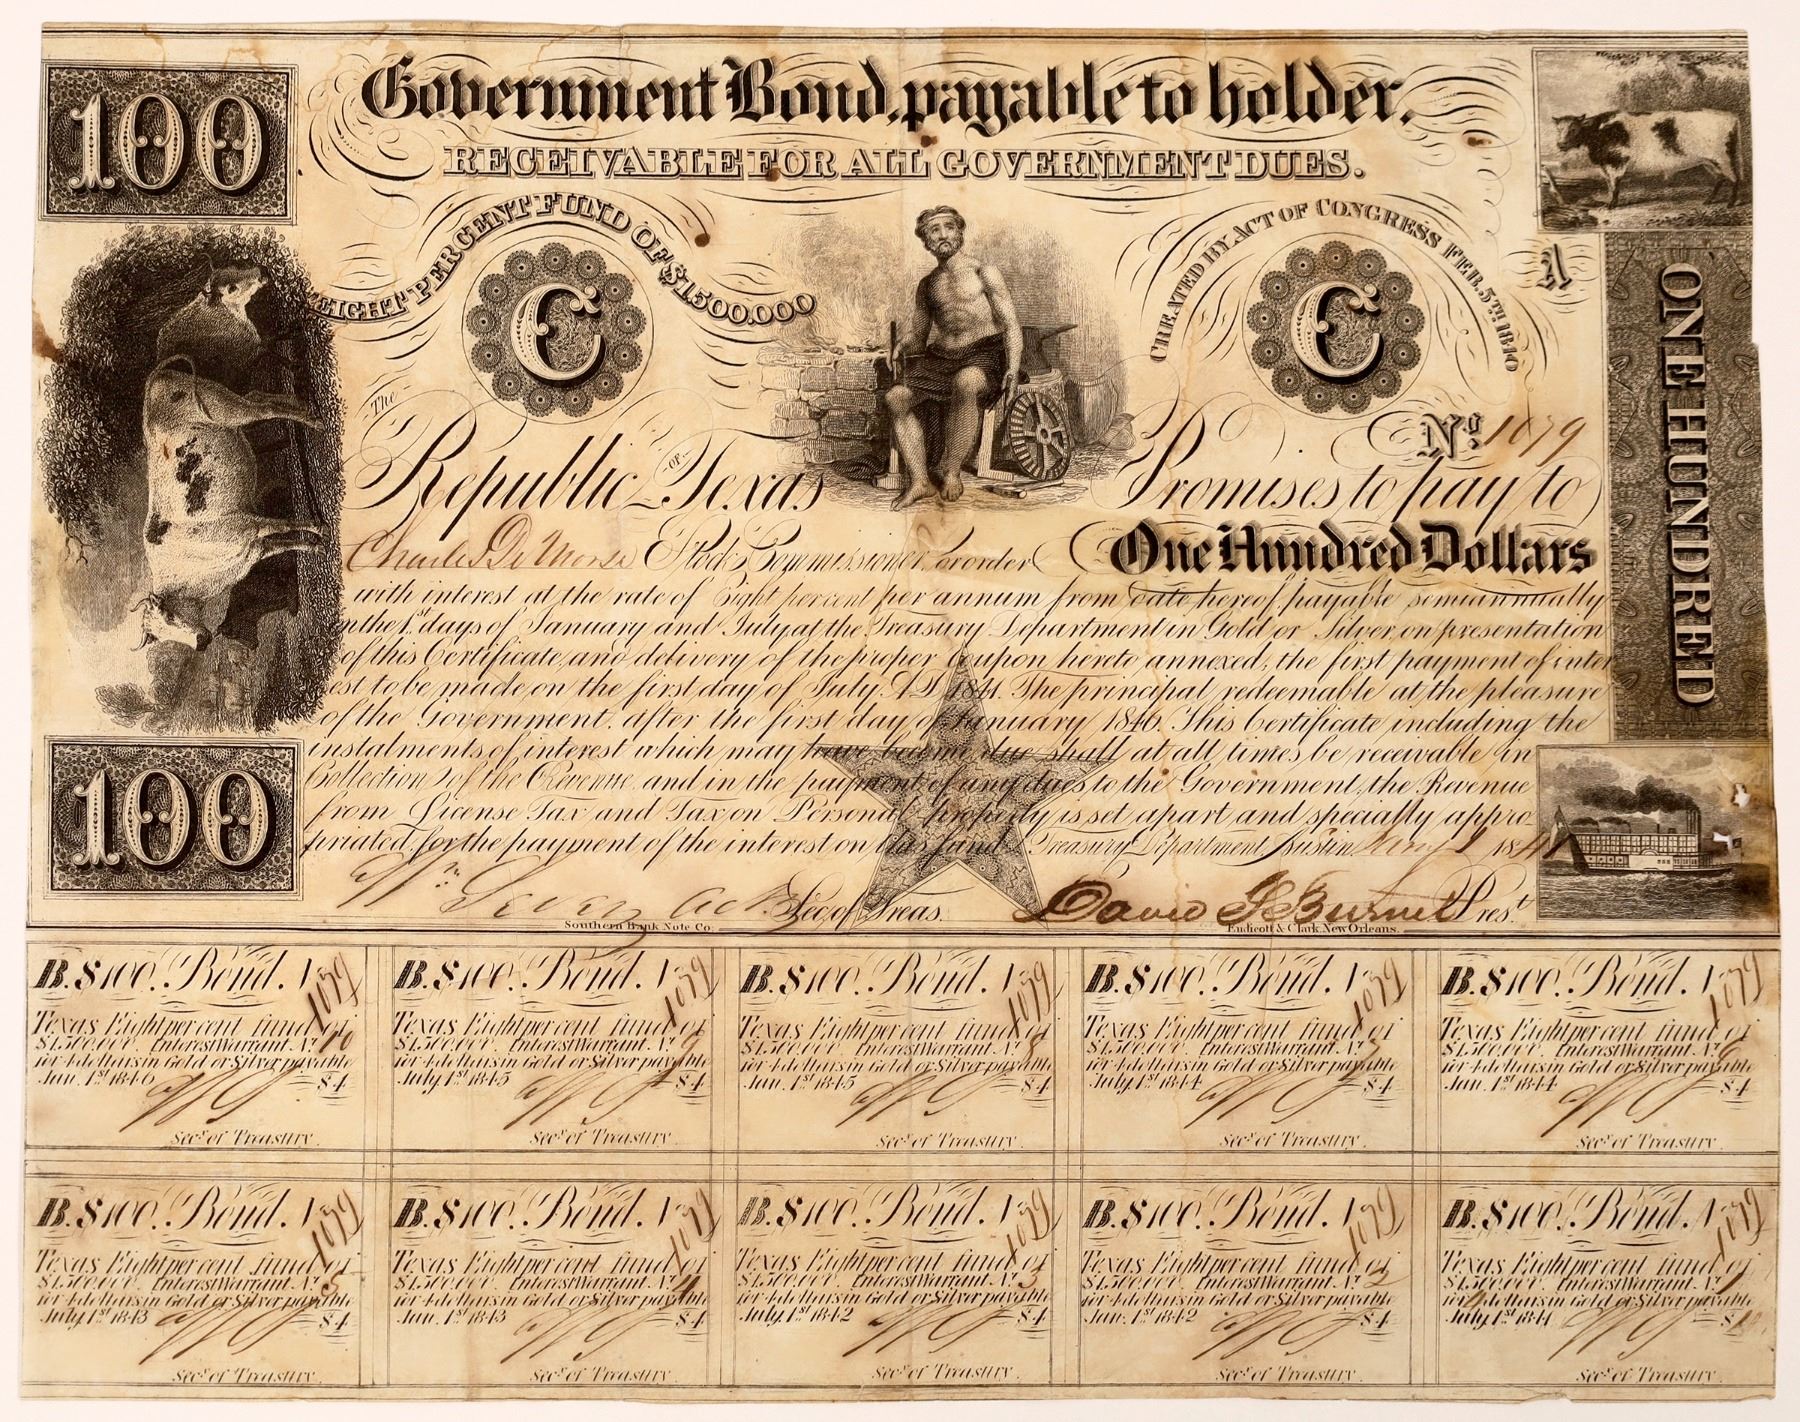 100
Government Bond, payable to holder.
RECEIVABLE FOR ALL GOVERNMENT DUES.
EIGHT PER CENT FUND OF $1500.000
CREATED BY ACT OF CONGRESS FEB. 5TH 1840
C
C
A
ONE HUNDRED
No. 1079
The Republic OF Texas Promises to pay to
Charles De Morse Stock Commissioner, or order One Hundred Dollars
with interest at the rate of Eight per cent per annum from date hereof, payable semiannually
on the 1st days of January and July at the Treasury Department in Gold or Silver, on presentation
of this Certificate, and delivery of the proper coupon hereto annexed; the first payment of inter
est to be made on the first day of July. A.D. 1841. The principal redeemable at the pleasure
of the Government, after the first day of January 1846. This Certificate including the
instalments of interest which may have become due shall at all times be receivable in
Collection of the Revenue, and in the payment of any dues to the Government, the Revenue
from License Tax and Tax on Personal property is set apart and specially appro
priated, for the payment of the interest on this fund. Treasury Department, Austin 184
100
Sec. of Treas.
David G Burnet Prest.
Southern Bank Note Co.
Endicott & Clark, New Orleans.
B. $100. Bond. No 1079
Texas Eight per cent fund of
$1,500,000. Interest Warrant. No 10
for 4 dollars in Gold or Silver payable
Jan. 1st 1846 $4
Secy. of Treasury.
B. $100. Bond. No 1079
Texas Eight per cent fund of
$1,500,000. Interest Warrant. No 9
for 4 dollars in Gold or Silver payable
July 1st 1845 $4
Secy. of Treasury.
B. $100. Bond. No 1079
Texas Eight per cent fund of
$1,500,000. Interest Warrant. No 8
for 4 dollars in Gold or Silver payable
Jan. 1st 1845 $4
Secy. of Treasury.
B. $100. Bond. No 1079
Texas Eight per cent fund of
$1,500,000. Interest Warrant. No 7
for 4 dollars in Gold or Silver payable
July. 1st 1844 $4
Secy. of Treasury.
B. $100. Bond. No 1079
Texas Eight per cent fund of
$1,500,000. Interest Warrant. No 6
for 4 dollars in Gold or Silver payable
Jan. 1st 1844 $4
Secy. of Treasury.
B. $100. Bond. No 1079
Texas Eight per cent fund of
$1,500,000. Interest Warrant. No 5
for 4 dollars in Gold or Silver payable
July 1st 1843 $4
Secy. of Treasury.
B. $100. Bond. No 1079
Texas Eight per cent fund of
$1,500,000. Interest Warrant. No 4
for 4 dollars in Gold or Silver payable
Jan. 1st 1843 $4
Secy. of Treasury.
B. $100. Bond. No 1079
Texas Eight per cent fund of
$1,500,000. Interest Warrant. No 3
for 4 dollars in Gold or Silver payable
July. 1st 1842 $4
Secy. of Treasury.
B. $100. Bond. No 1079
Texas Eight per cent fund of
$1,500,000. Interest Warrant. No 2
for 4 dollars in Gold or Silver payable
Jan. 1st 1842 $4
Secy. of Treasury.
B. $100. Bond. No 1079
Texas Eight per cent fund of
$1,500,000. Interest Warrant. No 1
for dollars in Gold or Silver payable
July. 1st 1841 $
Secy. of Treasury.